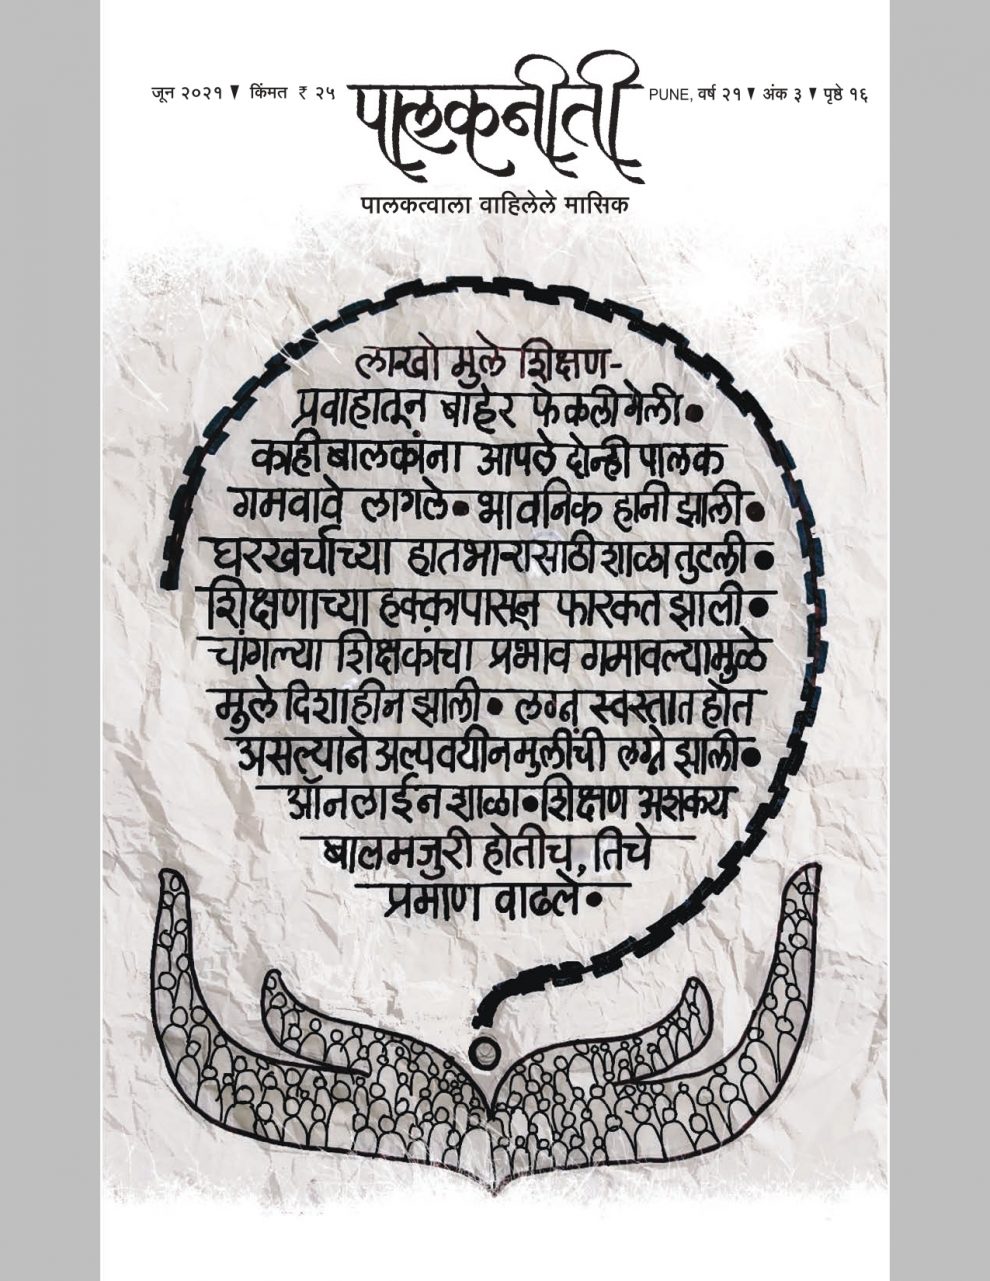 जून २०२१ ▼ किंमत ₹ २५
पालकनीती
PUNE, वर्ष २१ ▼ अंक ३ ▼ पृष्ठे १६
पालकत्वाला वाहिलेले मासिक
लाखो मुले शिक्षण-
प्रवाहातून बाहेर फेकली गेली.
काही बालकांना आपले दोन्ही पालक
गमवावे लागले. भावनिक हानी झाली.
घरखर्चाच्या हातभारासाठी शाळा तुटली.
शिक्षणाच्या हक्कापासून फारकत झाली.
चांगल्या शिक्षकांचा प्रभाव गमावल्यामुळे
मुले दिशाहीन झाली. लग्नं स्वस्तात होत
असल्याने अल्पवयीन मुलींची लग्ने झाली.
ऑनलाईन शाळा. शिक्षण अशक्य
बालमजुरी होतीच, तिचे
प्रमाण वाढले.